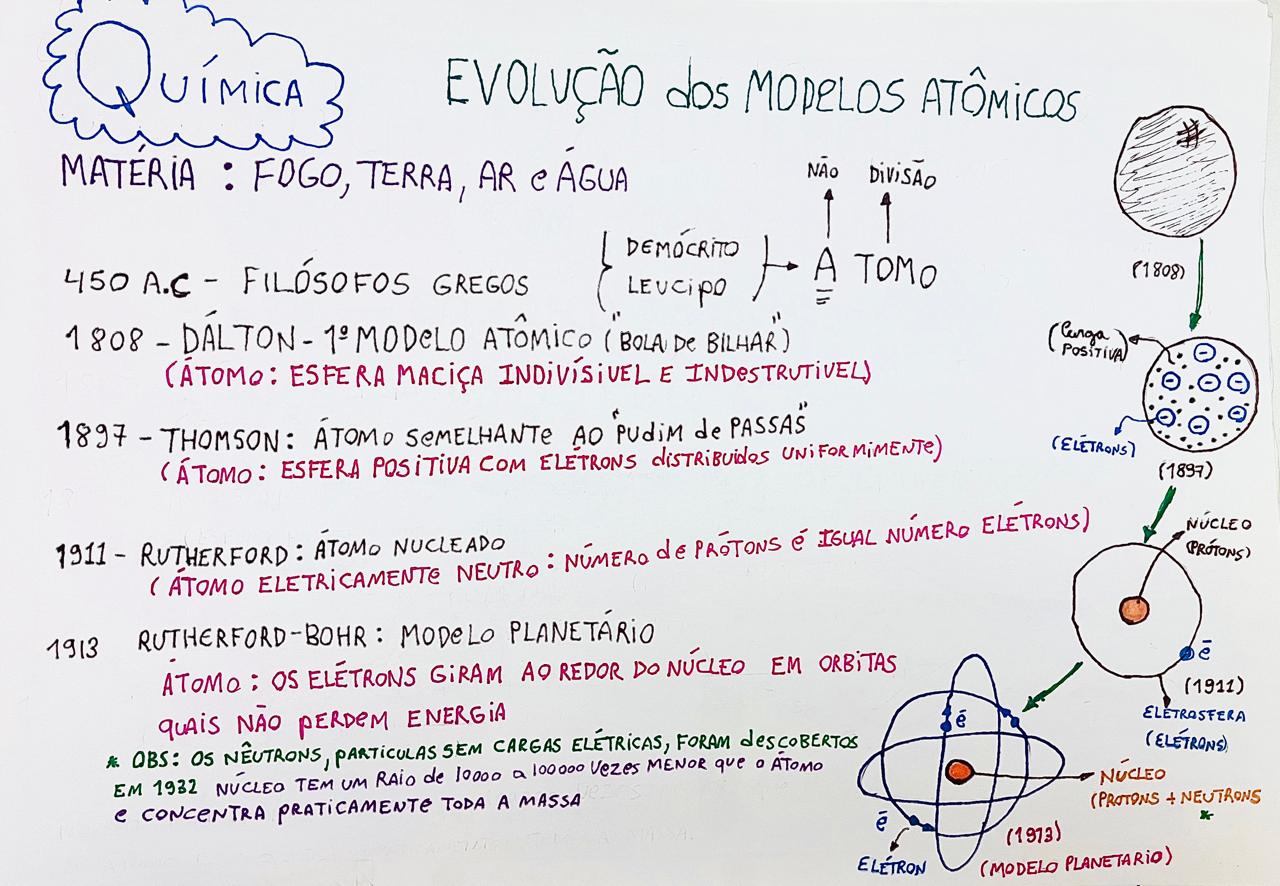 QUÍMICA
EVOLUÇÃO dos MODELOS ATÔMICOS
MATÉRIA : FOGO, TERRA, AR e ÁGUA
NÃO DIVISÃO
450 A.C - FILÓSOFOS GREGOS { DEMÓCRITO
LEUCIPO } → A TOMO
1808 - DÁLTON - 1º MODELO ATÔMICO ("BOLA De BILHAR")
(ÁTOMO: ESFERA MACIÇA INDIVÍSIVEL E INDESTRUTIVEL)
1897 - THOMSON: ÁTOMO SEMELHANTE AO "PUDIM de PASSAS"
(ÁTOMO: ESFERA POSITIVA COM ELÉTRONS distribuidos UNIFORMIMENTE)
1911 - RUTHERFORD: ÁTOMO NUCLEADO
(ÁTOMO ELETRICAMENTE NEUTRO: NÚMERO de PRÓTONS é IGUAL NÚMERO ELÉTRONS)
1913 RUTHERFORD-BOHR: MODELO PLANETÁRIO
ÁTOMO: OS ELÉTRONS GIRAM AO REDOR DO NÚCLEO EM ORBITAS
QUAIS NÃO PERDEM ENERGIA
* OBS: OS NÊUTRONS, PARTICULAS SEM CARGAS ELÉTRICAS, FORAM descobertos
EM 1932 NÚCLEO TEM UM RAIO de 10000 a 100000 VEZES MENOR QUE O ÁTOMO
e CONCENTRA PRATICAMENTE TODA A MASSA
(1808)
(Carga
POSITIVA)
(ELÉTRONS)
(1897)
NÚCLEO
(PRÓTONS)
ē
(1911)
ELETROSFERA
(ELÉTRONS)
ē
NÚCLEO
(PROTONS + NEUTRONS
*
ē
ELÉTRON
(1973)
(MODELO PLANETARIO)